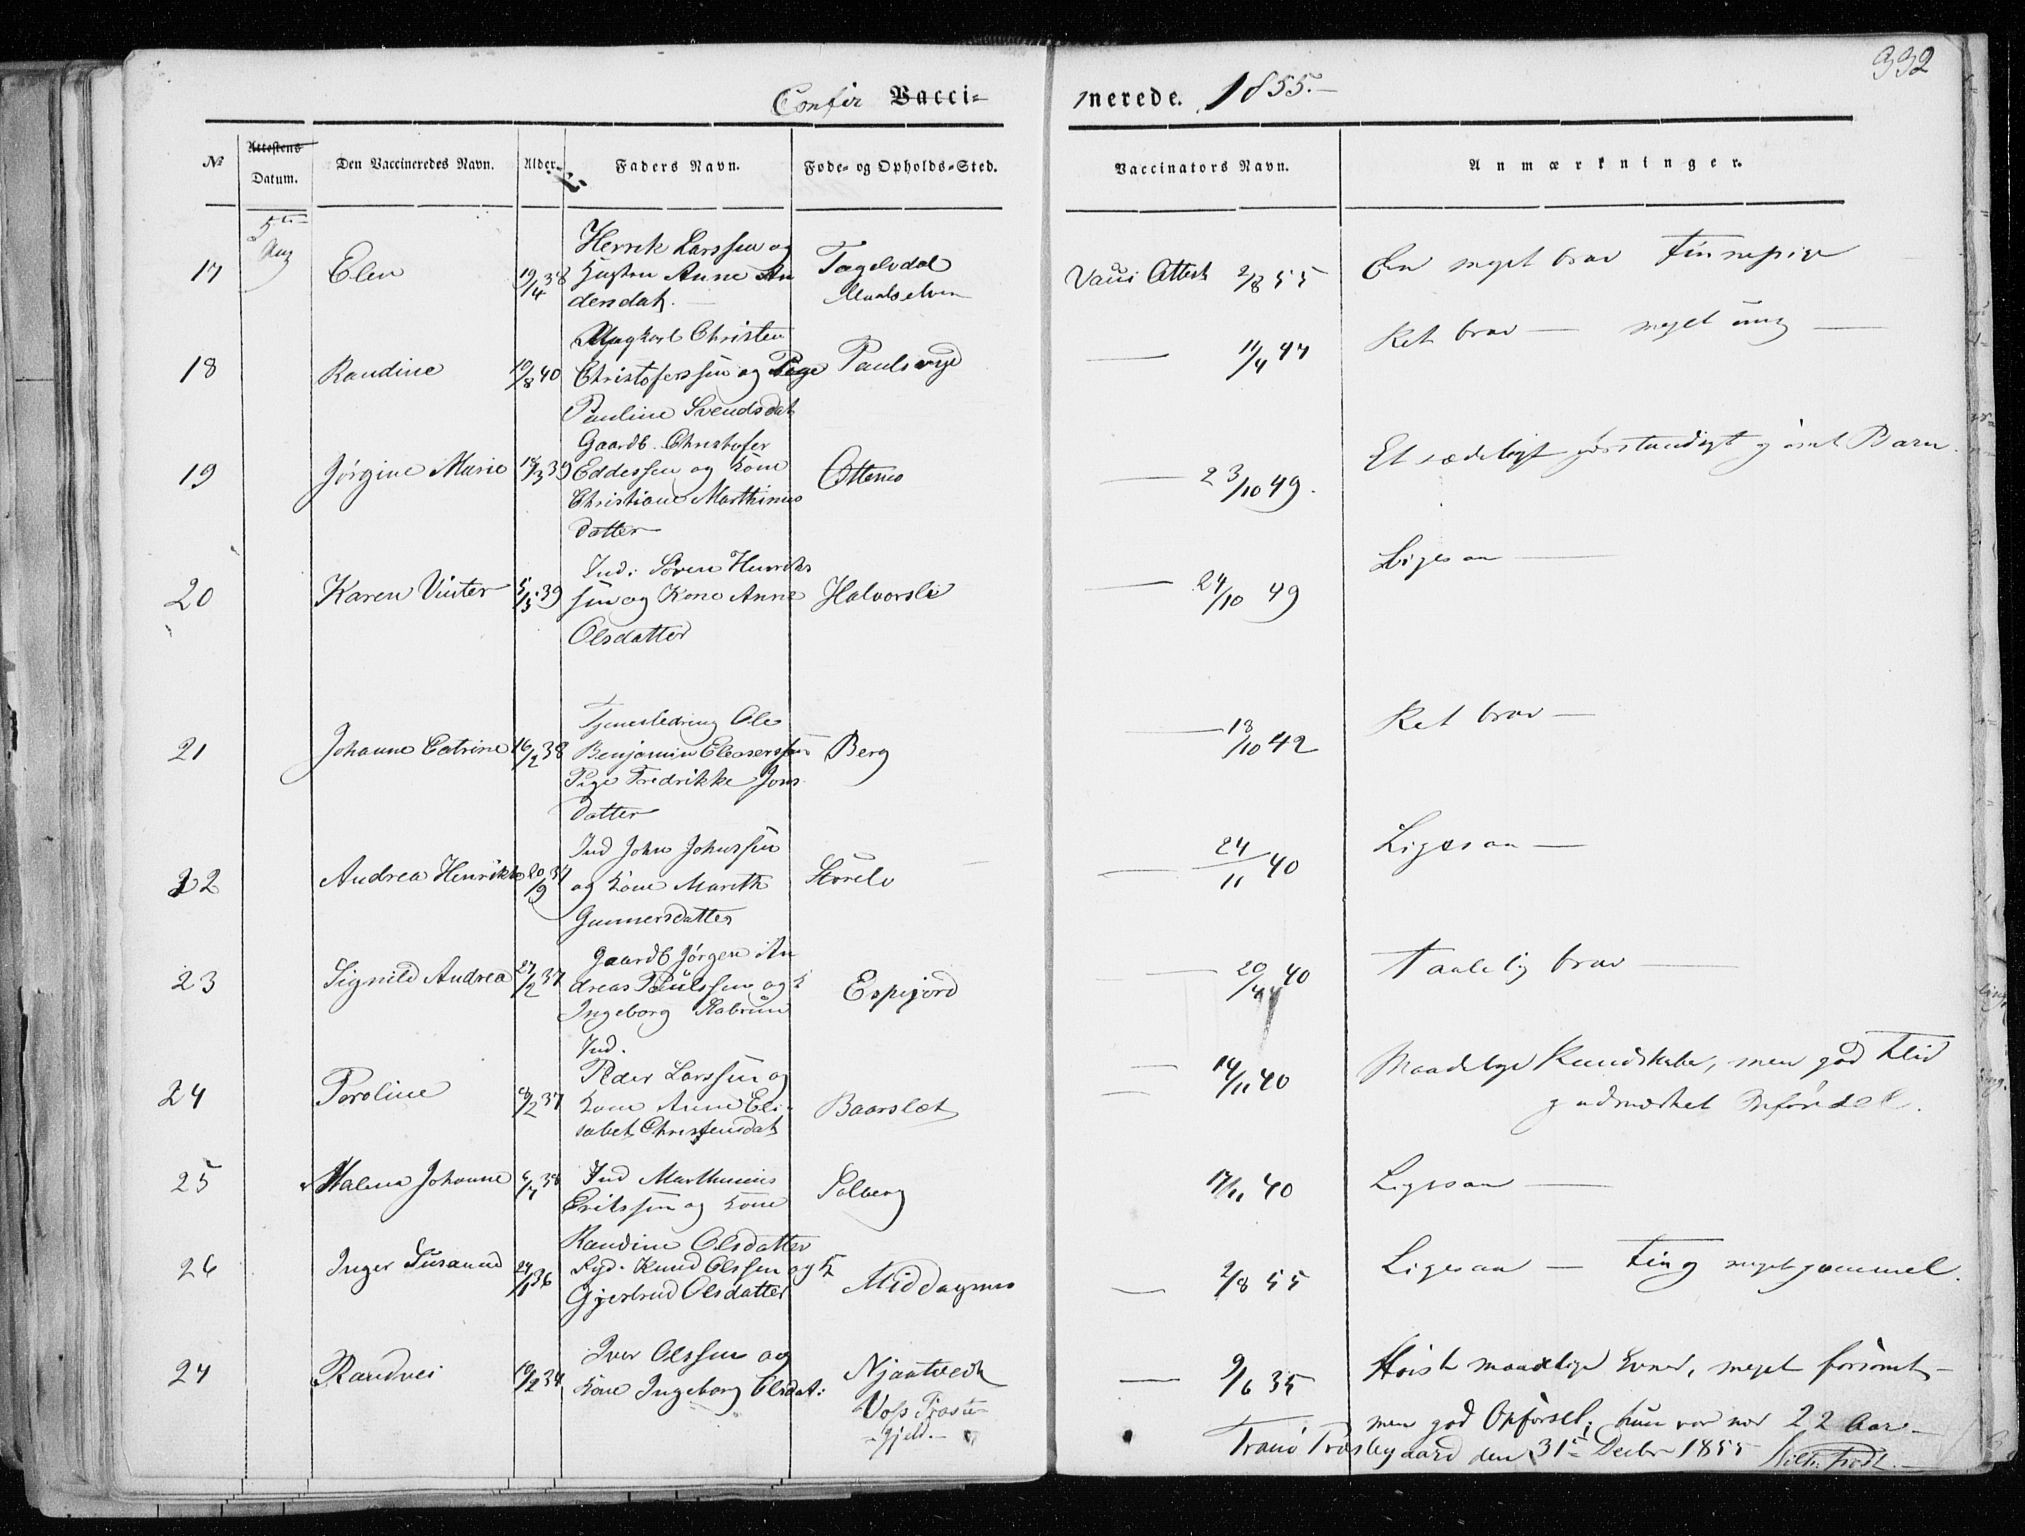 332
Confir Vacci-
nerede. 1855.-
No
Attestens Datum.
Den Vaccineredes Navn.
Alder.
Faders Navn.
Føde- og Opholds-Sted.
Vaccinators Navn.
Anmærkninger.
5te Aug
17 Elen 19/4 38
Henrik Larssen og
Anne An
densdat.
Tagelvdal
Maalselven
Vacc: Attest 2/8 55
En meget brav Finnepige
18 Randine 10/8 40
Ungkarl Christen
Christoferssen og Pige
Pauline Svendsdat
Paulsryd
— 11/4 47
Ret brav — meget ung —
19 Jørgine Marie 18/3 39
Gaardb. Christofer
Eddessen og Kone
Christiane Marthinus
datter
— 23/10 49.
Et sædeligt forstandigt Barn.
20 Karen Vinter 5/5 39
Ind: Søren Henriks
sen og Kone Anne
Olsdatter
Halvorsli
— 24/10 49
Ligesaa —
21 Johanne Catrine 16/2 38
Ole
Benjamin
Pige Fredrikke Jons
datter
Berg
— 18/10 42
Ret brav —
22 Andrea Henrikke 20/9 37
Ind John Johnssen
og Kone Mareth
Gunnersdatter
Storelv
— 24/11 40
Ligesaa —
23 Signild Andrea 27/2 37
Gaardb Jørgen An
dreas Paulssen og K
Ingeborg
Espejord
— 20/11 40
Taalelig brav —
24 Peroline 8/2 37
Ind.
Peder Larssen og
Kone Anne Eli-
sabet Christensdat
Baarslæt
— 14/11 40
Maadelige Kundskaber, men god Flid
25 Malena Johanne 6/7 38
Ind Marthinus
Erikssen og Kone
Randine Olsdatter
Solberg
17/11 40
Ligesaa —
26 Inger Susanna 24/1 36
Knud Olssen og K
Gjertrud Olsdatter
Middagsnes
— 2/8 55
Ligesaa — Ting meget gammel.
27 Randvei 10/2 34
Iver Olssen og
Kone Ingeborg Olsdat:
Njaatvedt
Voss Præste-
-gjeld.-
— 9/6 35
Høist maadelige Evner, meget forsømt -
men god Opførsel; hun var nær 22 Aar -
Tranø Præstegaard den 31te Decbr 1855